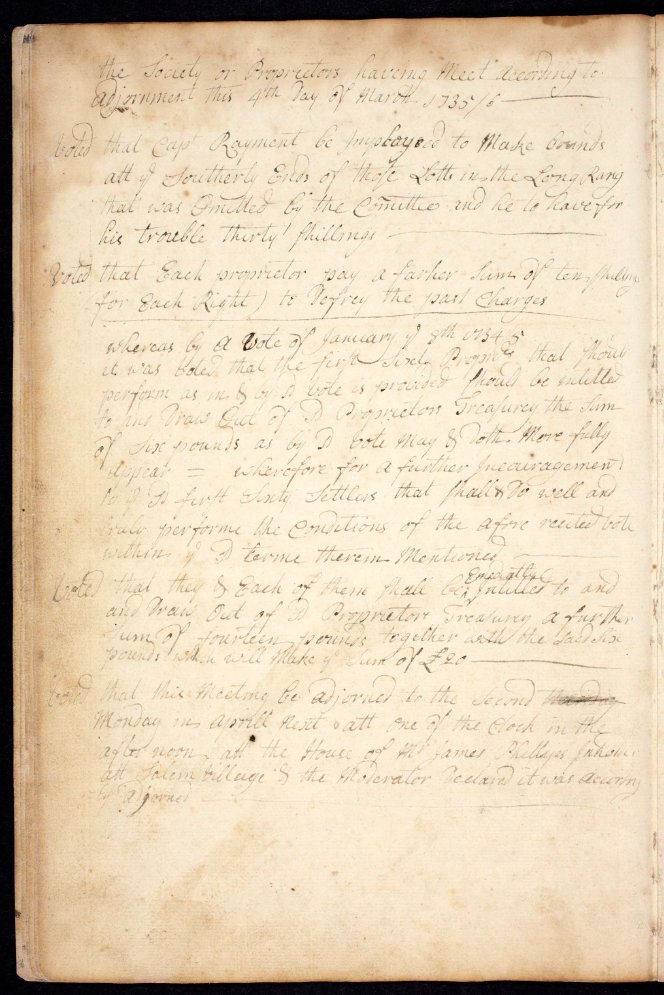 the Society or Proprietors haveing Meet according to
adjornment this 4th Day of March 1735/6
Voted that Capt Rayment be Imployed to Make bounds
att ye Southerly Ends of those Lotts in the Long Rang
that was Omitted by the Comittee and he to have for
his trouble thirty Shillings
Voted that Each proprietor pay a farher Sum of ten Shillings
for Each Right) to Defrey the past Charges
whereas by a Vote of January ye 8th 1734/5
it was Voted that the first Sixty Propriers that Should
perform as in & by sd Vote is provided Should be intitled
to and Draw Out of sd Proprietors Treasurey the Sum
of Six pounds as by sd Vote May & doth More fully
appear = wherefore for a further Incouragement
to ye sd first Sixty Settlers that Shall & Do well and
truly performe the Conditions of the afore recited Vote
within ye sd terme therein Mentioned
Voted that they & Each of them Shall be Intitled to and
and Draw Out of sd Proprietor Treasurey a further
Sum of fourteen pounds together with the said Six
pounds which will Make ye Sum of £20
Voted that this Meeting be adjorned to the Second
Monday in Aprill Next att one of the Clock in the
after noon att the House of Mr James Phillyes Inhouer
att Salem Villeige & the Moderator Declared it was
adjorned